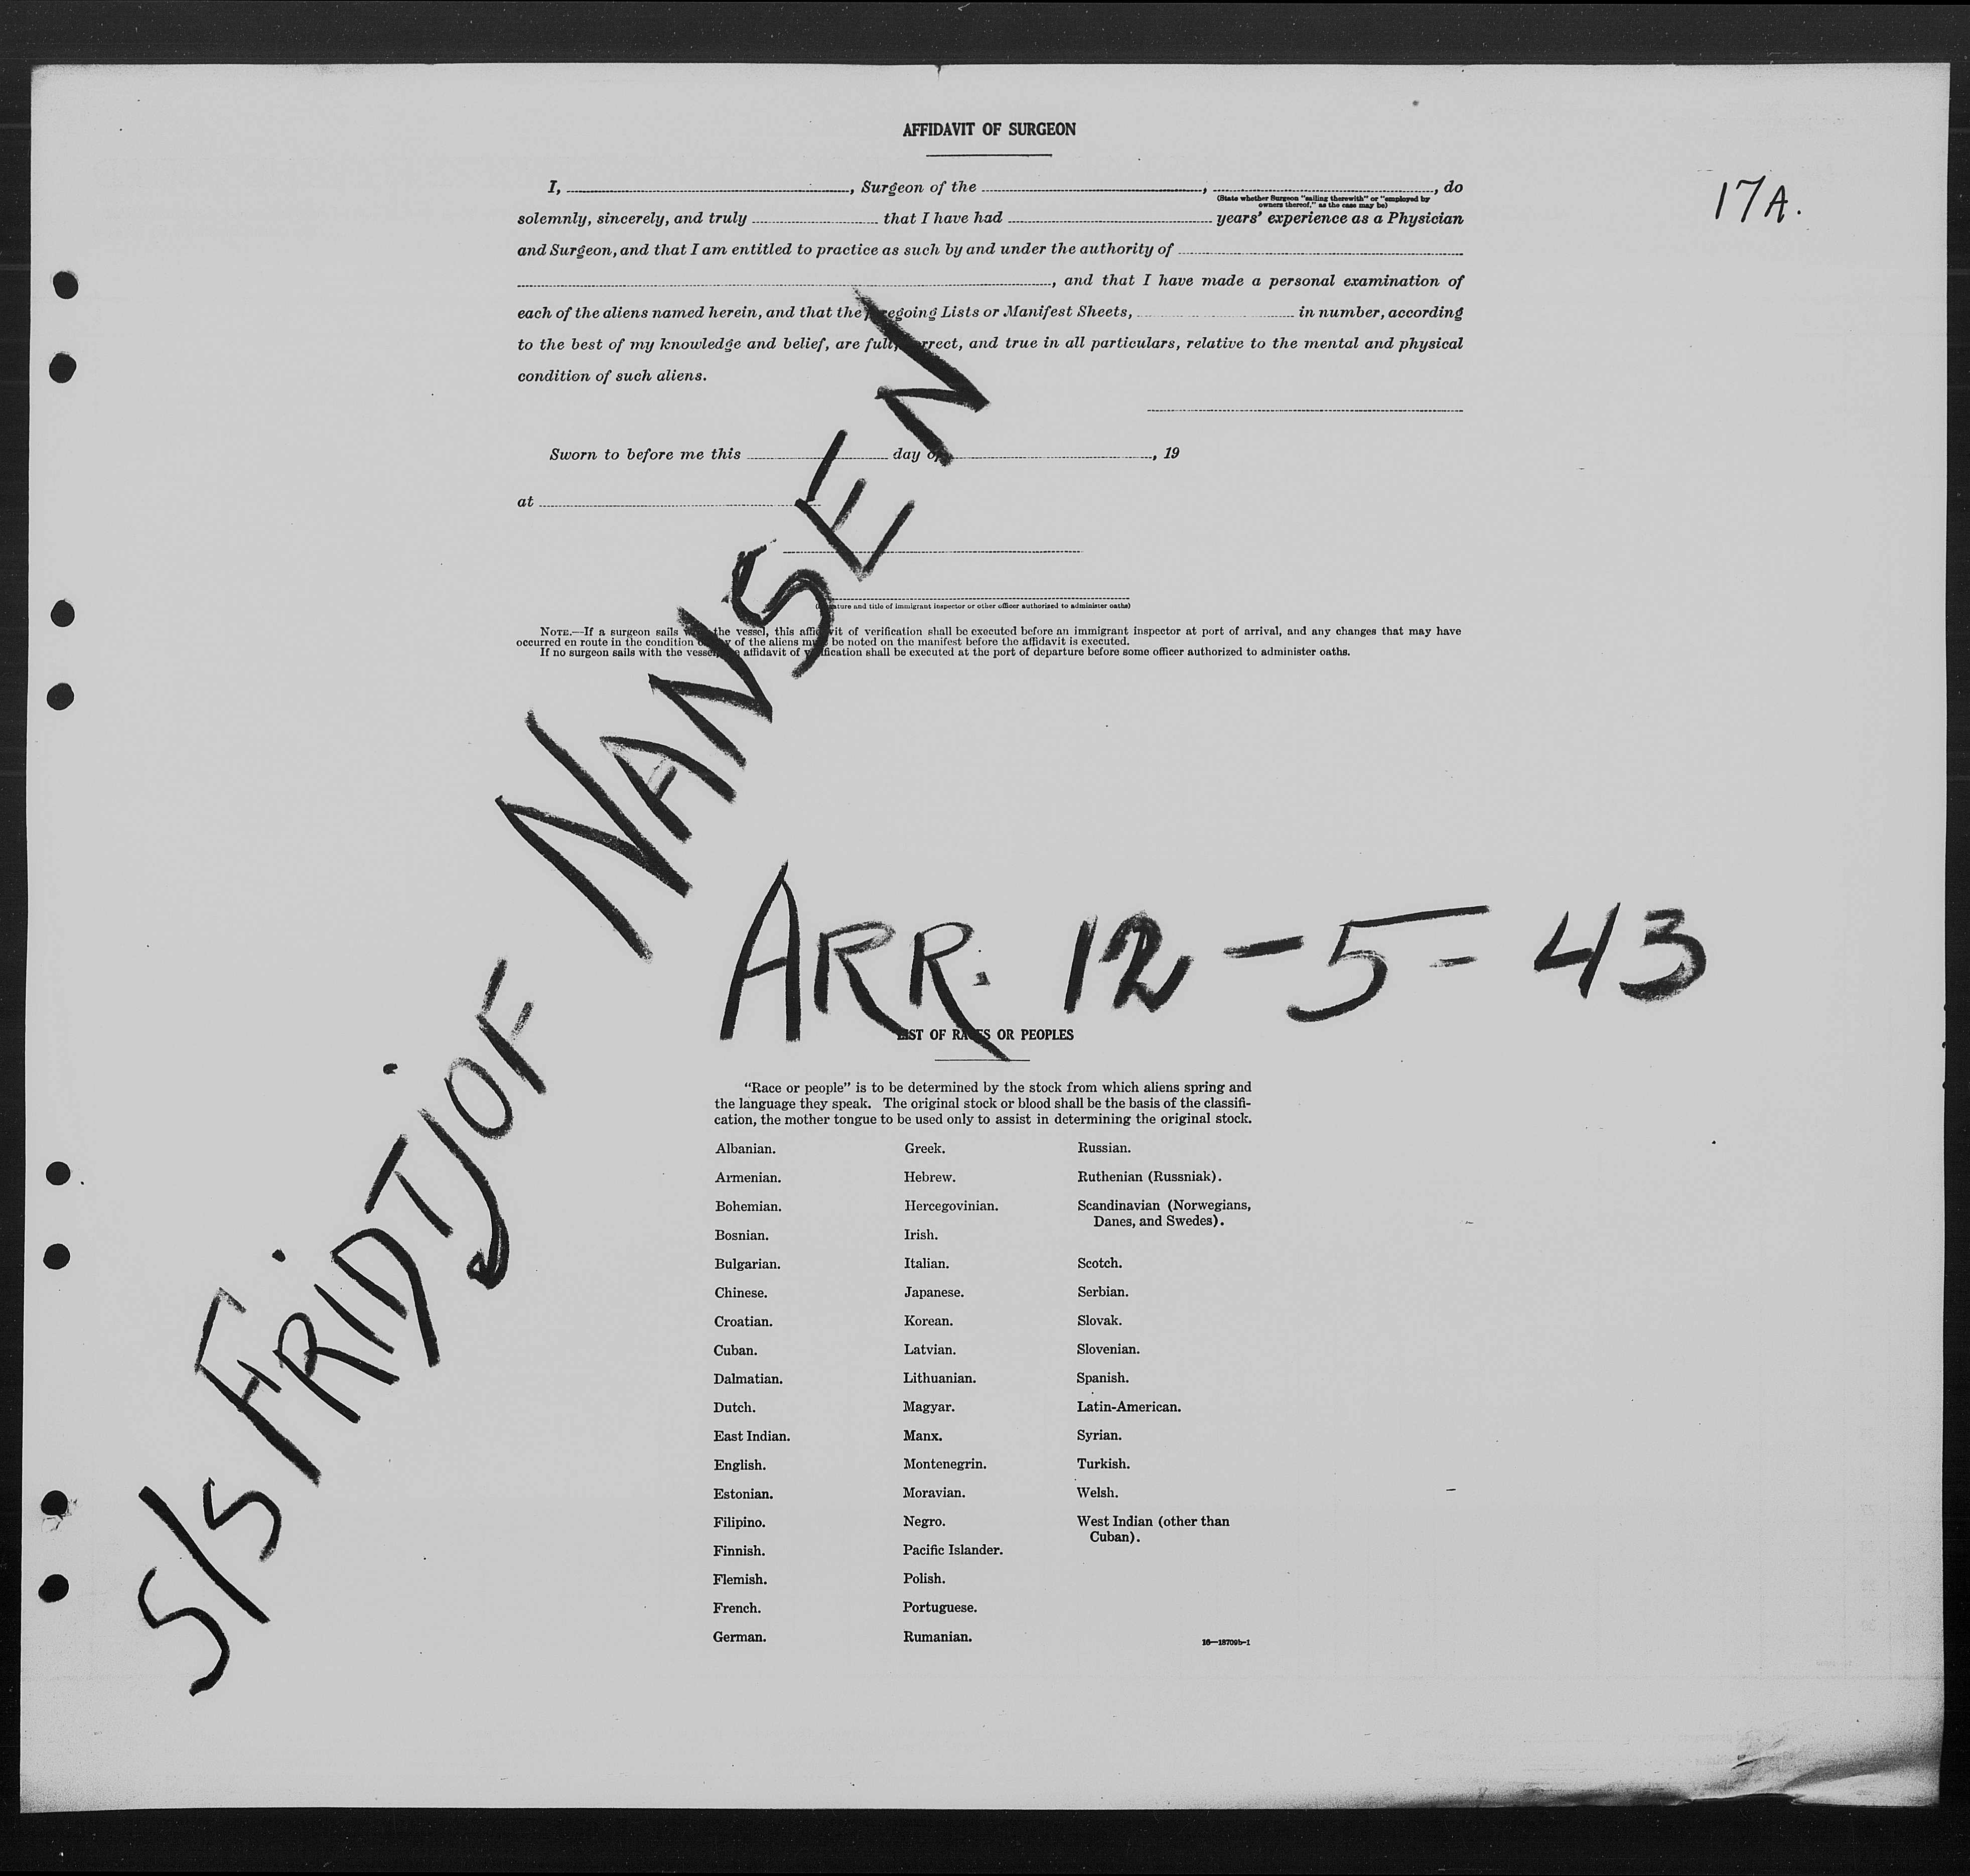 AFFIDAVIT OF SURGEON
17A.
I, , Surgeon of the , , do
(State whether Surgeon "sailing therewith" or "employed by
owners thereof," as the case may be)
solemnly, sincerely, and truly that I have had years' experience as a Physician
and Surgeon, and that I am entitled to practice as such by and under the authority of
, and that I have made a personal examination of
each of the aliens named herein, and that the foregoing Lists or Manifest Sheets, in number, according
to the best of my knowledge and belief, are full, correct, and true in all particulars, relative to the mental and physical
condition of such aliens.
Sworn to before me this day of , 19
at
(Signature and title of immigrant inspector or other officer authorized to administer oaths)
NOTE.—If a surgeon sails with the vessel, this affidavit of verification shall be executed before an immigrant inspector at port of arrival, and any changes that may have
occurred en route in the condition of any of the aliens must be noted on the manifest before the affidavit is executed.
If no surgeon sails with the vessel, the affidavit of verification shall be executed at the port of departure before some officer authorized to administer oaths.
S/S FRIDTJOF NANSEN
ARR. 12-5-43
LIST OF RACES OR PEOPLES
"Race or people" is to be determined by the stock from which aliens spring and
the language they speak. The original stock or blood shall be the basis of the classifi-
cation, the mother tongue to be used only to assist in determining the original stock.
Albanian.
Armenian.
Bohemian.
Bosnian.
Bulgarian.
Chinese.
Croatian.
Cuban.
Dalmatian.
Dutch.
East Indian.
English.
Estonian.
Filipino.
Finnish.
Flemish.
French.
German.
Greek.
Hebrew.
Hercegovinian.
Irish.
Italian.
Japanese.
Korean.
Latvian.
Lithuanian.
Magyar.
Manx.
Montenegrin.
Moravian.
Negro.
Pacific Islander.
Polish.
Portuguese.
Rumanian.
Russian.
Ruthenian (Russniak).
Scandinavian (Norwegians,
Danes, and Swedes).
Scotch.
Serbian.
Slovak.
Slovenian.
Spanish.
Latin-American.
Syrian.
Turkish.
Welsh.
West Indian (other than
Cuban).
16—18709b-1